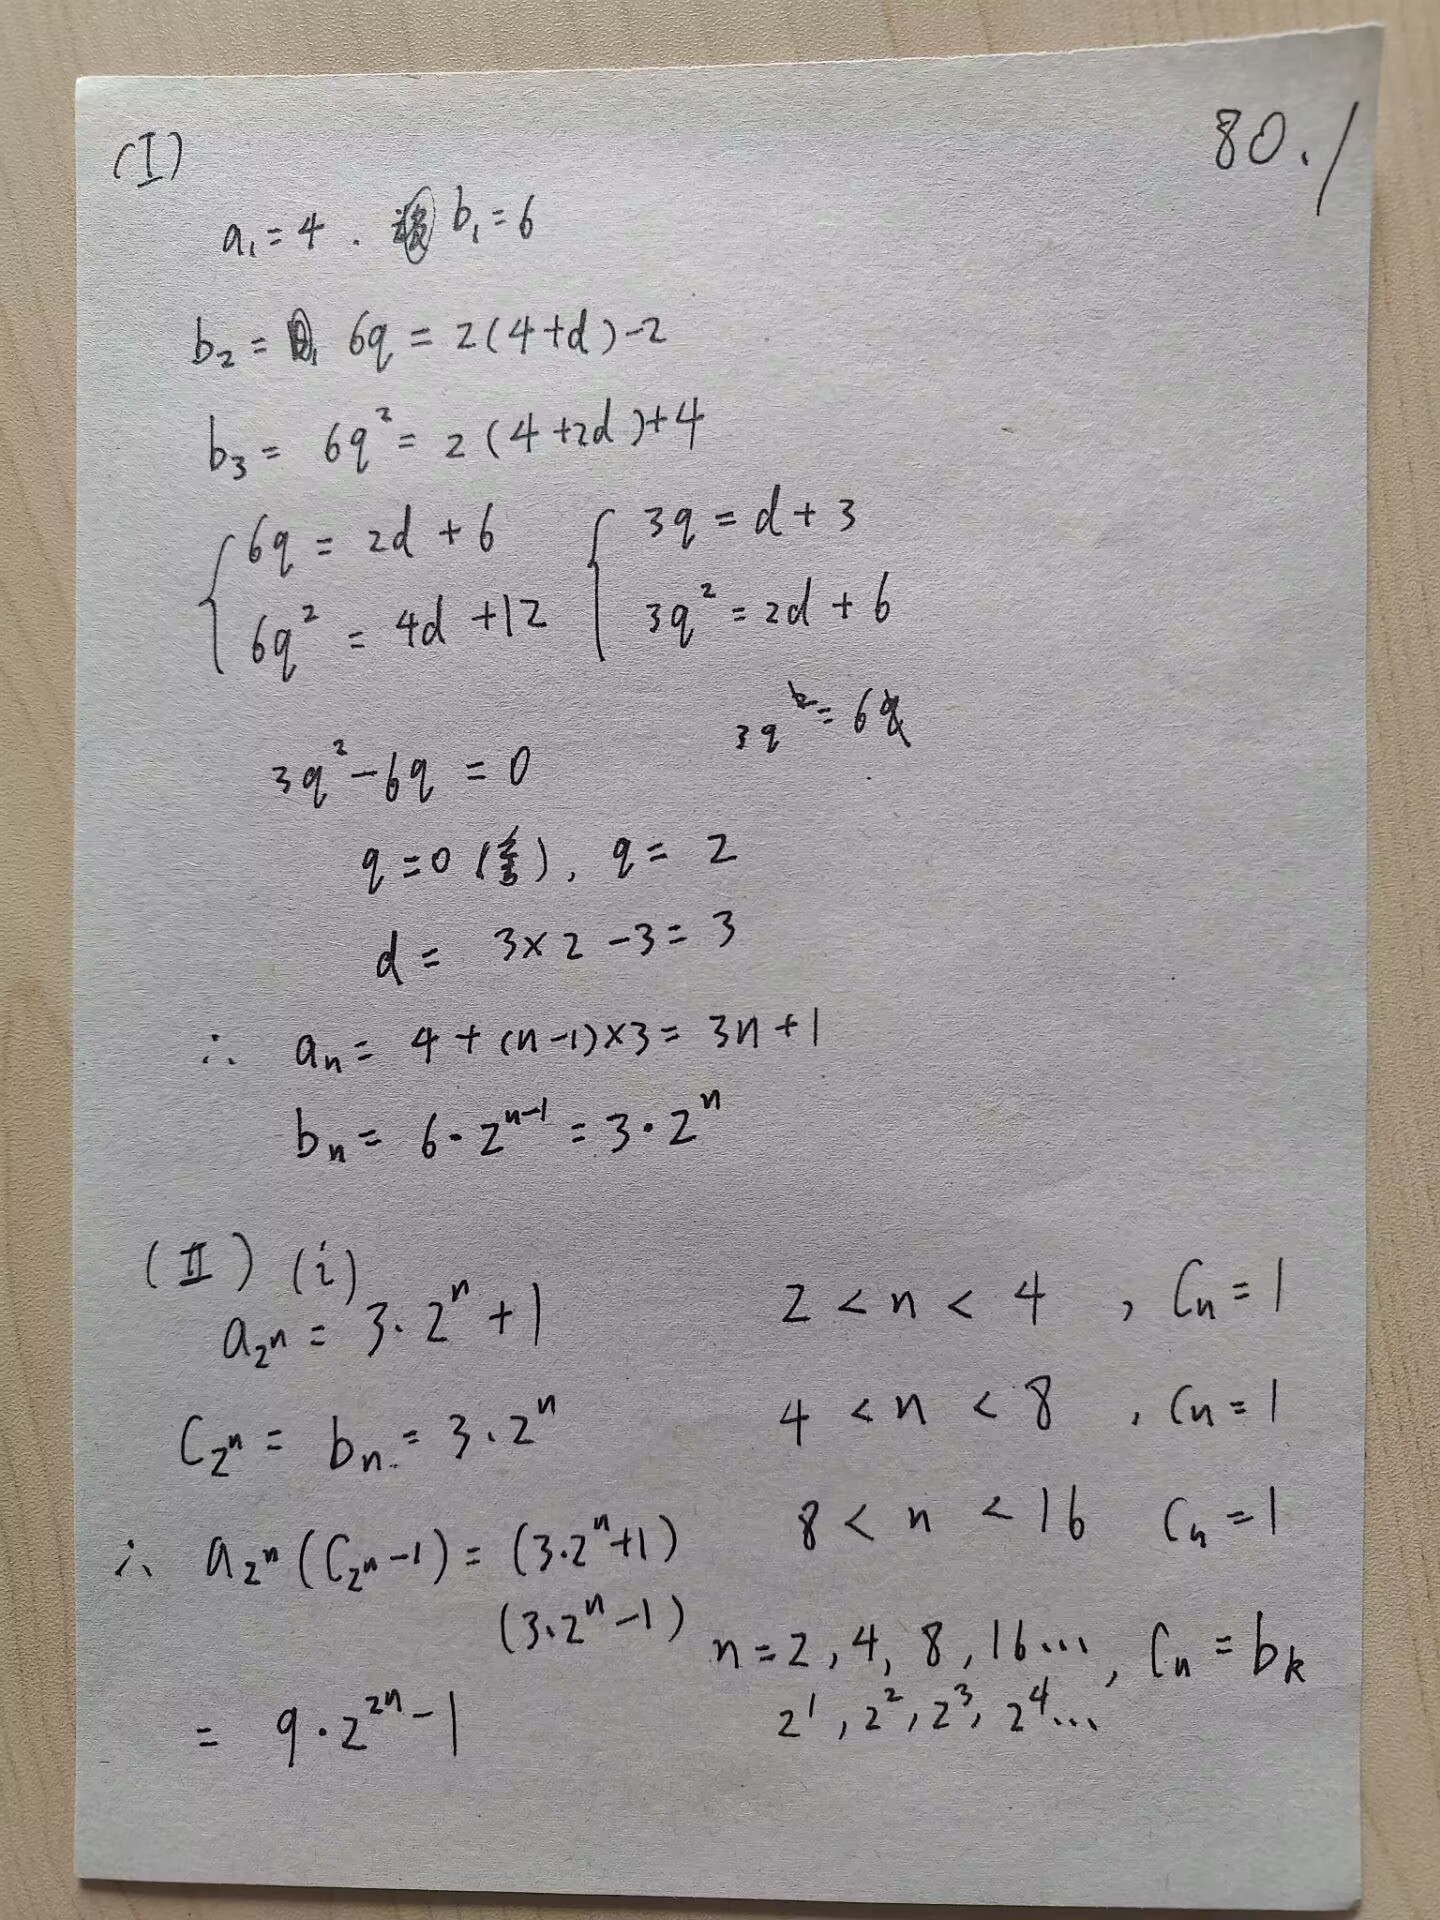 80./
(I)
a₁=4. b₁=6
b₂= 6q = 2(4+d)-2
b₃= 6q²= 2(4+2d)+4
{6q = 2d+6 {3q = d+3
6q² = 4d+12 3q² = 2d+6
3q²=6q
3q²-6q = 0
q=0(舍), q= 2
d= 3×2-3=3
∴ aₙ= 4+(n-1)×3= 3n+1
bₙ= 6·2ⁿ⁻¹=3·2ⁿ
(Ⅱ) (i)
a₂ⁿ= 3·2ⁿ+1
C₂ⁿ= bₙ=3·2ⁿ
∴ a₂ⁿ(C₂ⁿ-1)=(3·2ⁿ+1)
(3·2ⁿ-1)
= 9·2²ⁿ-1
2<n<4 , Cₙ=1
4<n<8 , Cₙ=1
8<n<16 Cₙ=1
n=2,4,8,16…, Cₙ=bₖ
2¹,2²,2³,2⁴…